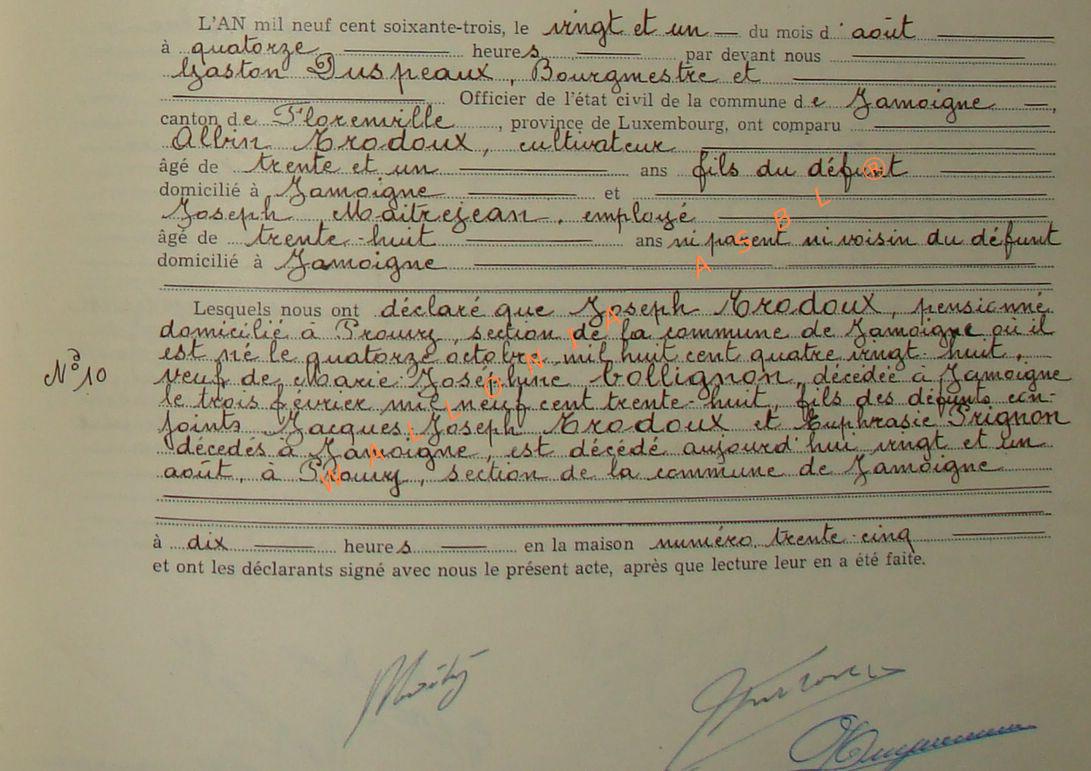 L'AN mil neuf cent soixante-trois, le vingt et un du mois d' août
à quatorze heures par devant nous
Gaston Duspeaux, Bourgmestre et
Officier de l'état civil de la commune de Jamoigne,
canton de Florenville, province de Luxembourg, ont comparu
Albin Trodoux, cultivateur
âgé de trente et un ans fils du défunt
domicilié à Jamoigne et
Joseph Maitrejean, employé
âgé de trente-huit ans ni parent ni voisin du défunt
domicilié à Jamoigne
Lesquels nous ont déclaré que Joseph Trodoux, pensionné
domicilié à Prouvy, section de la commune de Jamoigne où il
est né le quatorze octobre mil huit cent quatre vingt huit,
N° 10
veuf de Marie-Joséphine Collignon, décédée à Jamoigne
le trois février mil neuf cent trente-huit, fils des défunts con-
joints Jacques Joseph Trodoux et Euphrasie Prignon
décédés à Jamoigne, est décédé aujourd'hui vingt et un
août, à Prouvy, section de la commune de Jamoigne
à dix heures en la maison numéro trente-cinq
et ont les déclarants signé avec nous le présent acte, après que lecture leur en a été faite.
WALLONIA ASBL ®